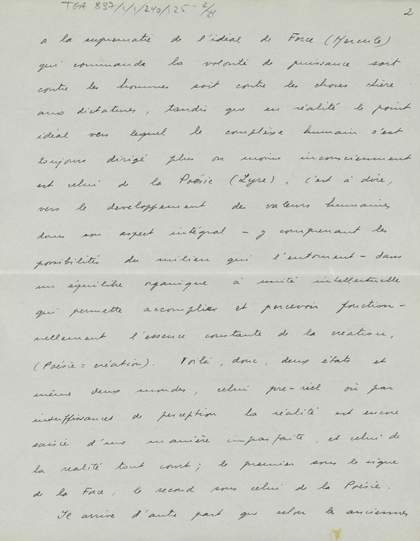 TGA 897/1/1/243/125 - 2/8
2
a la suprematie de l'idéal de Force (Hercule)
qui commande la volonté de puissance soit
contre les hommes soit contre les choses
aux dictatures, tandis que en réalité le point
idéal vers lequel le complèxe humain s'est
toujours dirigé plus ou moins inconsciemment
est celui de la Poésie (Lyre), c'est à dire,
vers le developpement de valeurs humaines
dans son aspect intégral - y comprenant les
possibilités du milieu qui l'entourent - dans
un équilibre organique à unité intellectuelle
qui permette accomplir et percevoir fonction-
nellement l'essence constante de la création,
(Poésie = création). Voilà, donc, deux états et
même deux mondes, celui pre-réel où par
insuffissances de perception la réalité est encore
saisie d'une manière imparfaite, et celui de
la realité tout court; le premier sous le signe
de la Force, le second sous celui de la Poésie.
Il arrive d'autre part que selon les anciennes